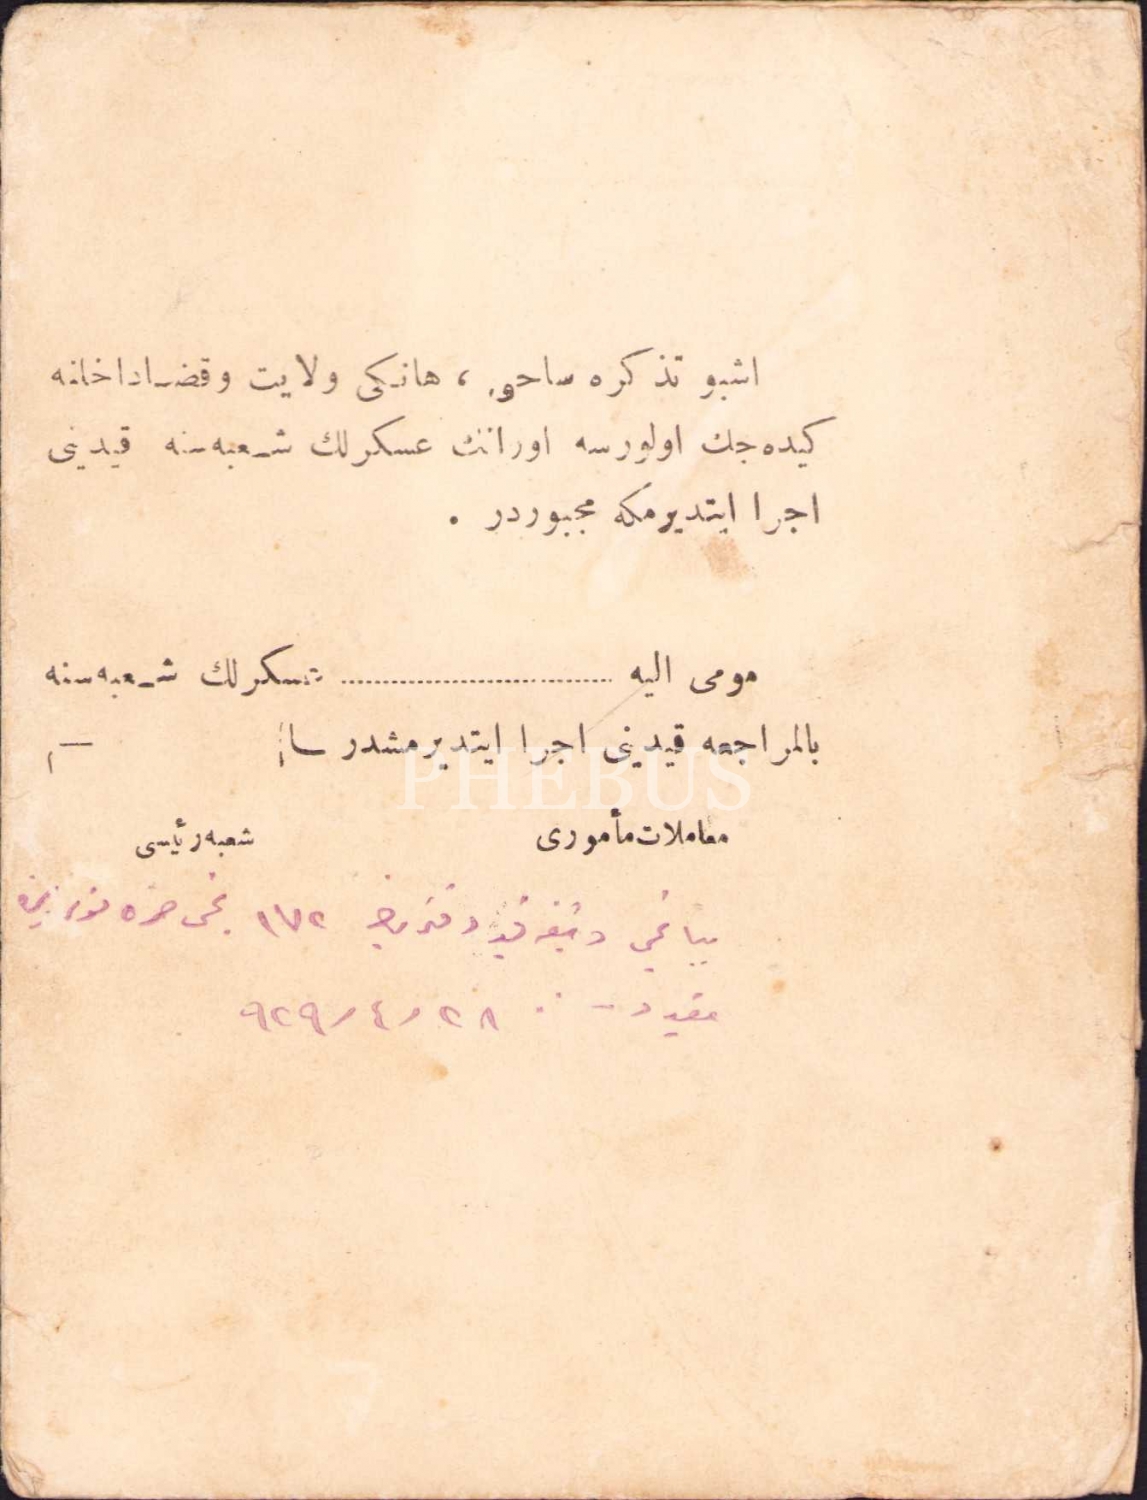 اشبو تذكره ساحبى ، هانكى ولايت وقضـا داخلنه
كيده‌جك اولورسه اورانك عسكرلك شـعبه‌سنه قيدينى
اجرا ايتديرمكه مجبوردر .
مومى اليه .............................. عسكرلك شـعبه‌سنه
بالمراجعه قيدينى اجرا ايتديرمشدر
PHEBUS
معاملات مأمورى
شعبه رئيسى
يبانجى ١٧٢
مقيددر ٢٨ / ٤ / ٩٢٩